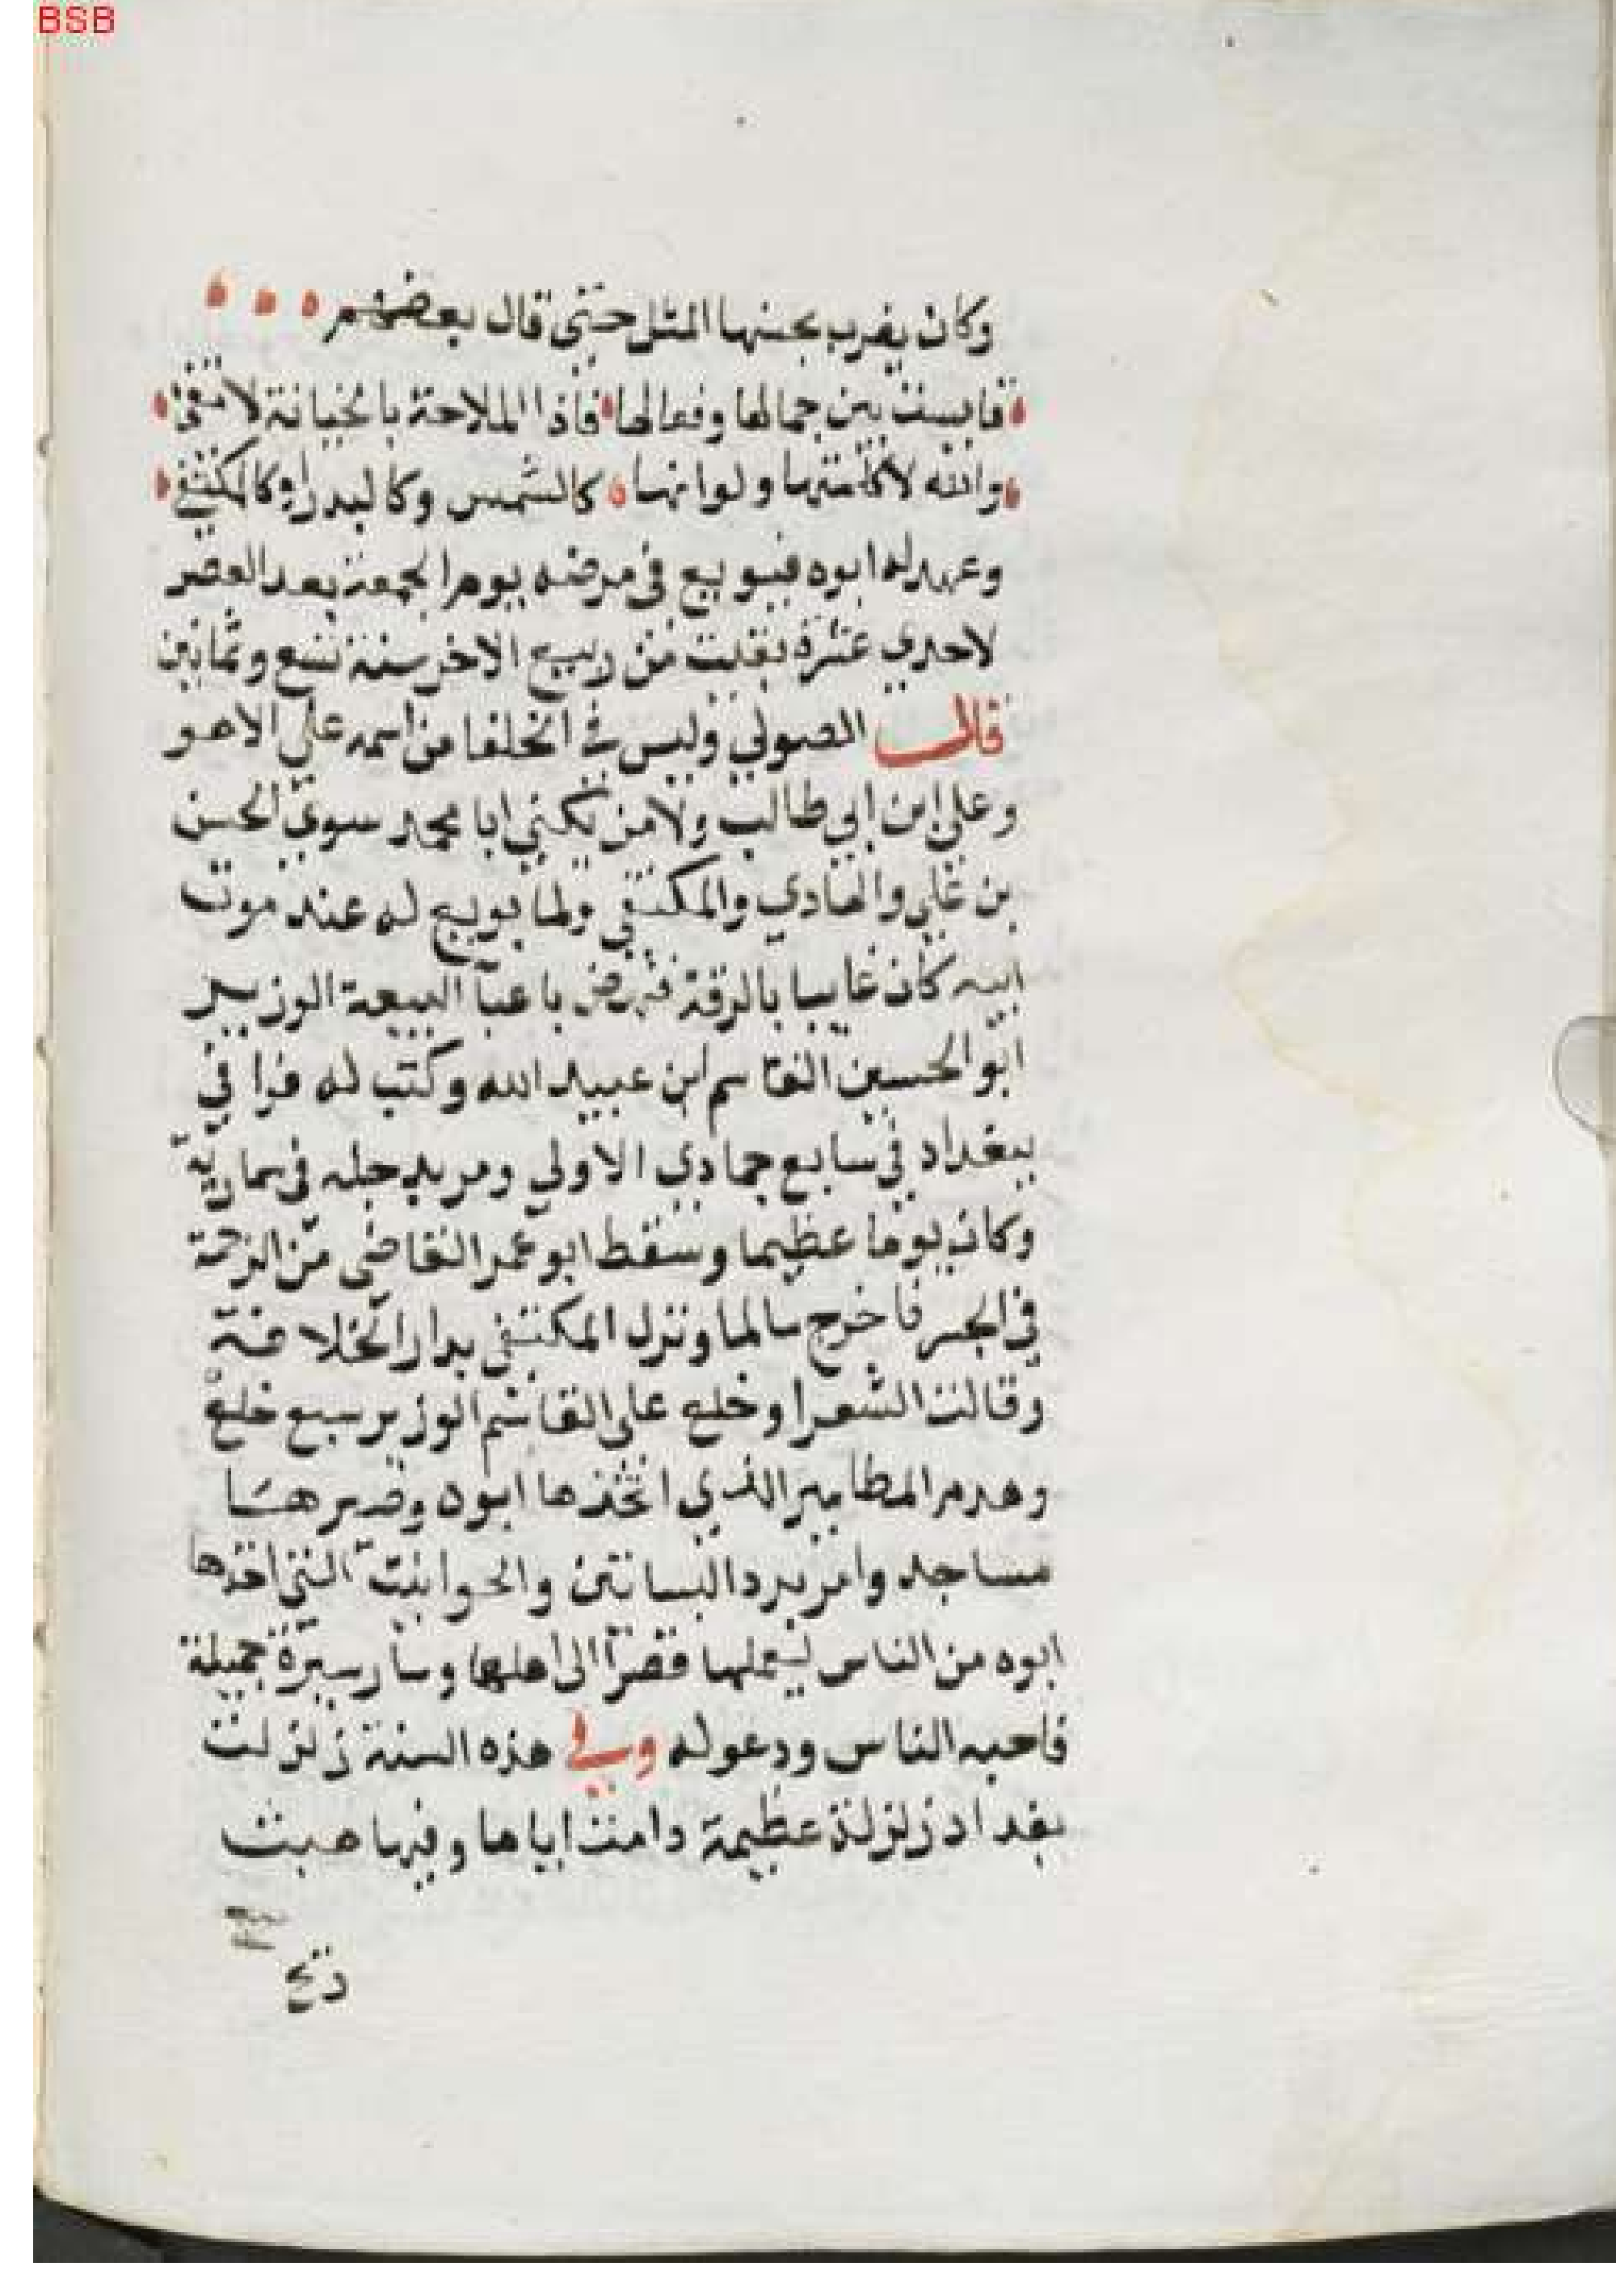 BSB
وكان يضرب بحسنها المثل حتى قال بعضهم
قايست بين جمالها وفعالها فاذا الملاحة بالخيانة لا تفى
والله لا كلمتها ولو انها كالشمس وكالبدر او كالمكتفى
وعهد له ابوه فبويع فى مرضه يوم الجمعة بعد العصر
لاحدي عشرة بقيت من ربيع الاخر سنة تسع وثمانين
قال الصولي وليس في الخلفا من اسمه علي الا هو
وعلى ابن ابي طالب ولا من يكني ابا محمد سوي الحسن
بن علي والهادي والمكتفي ولما بويع له عند موت
ابيه كان غايبا بالرقة فنهض باعبآ البيعة الوزير
ابو الحسين القاسم ابن عبيد الله وكتب له فوافي
ببغداد في سابع جمادي الاولي ومر بدجله فى سمارية
وكان يوما عظيما وسقط ابو عمر القاضى من الزحمة
في الجسر فاخرج سالما ونزل المكتفى بدار الخلافة
وقالت الشعرا وخلع على القاسم الوزير سبع خلع
وهدم المطامير الذي اتخذها ابوه وصيرها
مساجد وامر برد البساتين والحوانيت التى اخذها
ابوه من الناس ليعملها قصرا الى اهلها وسار سيرة جميلة
فاحبه الناس ودعو له وفي هذه السنة زلزلت
بغداد زلزلة عظيمة دامت اياما وفيها هبت
ريح